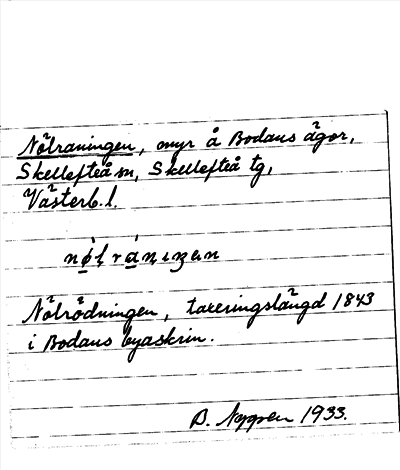 Nölraningen, myr å Bodans ägor,
Skellefteå sn, Skellefteå tg,
Västerb. l.
Nölrödningen, taxeringslängd 1843
i Bodans byaskrin.
B. Nygren 1933.